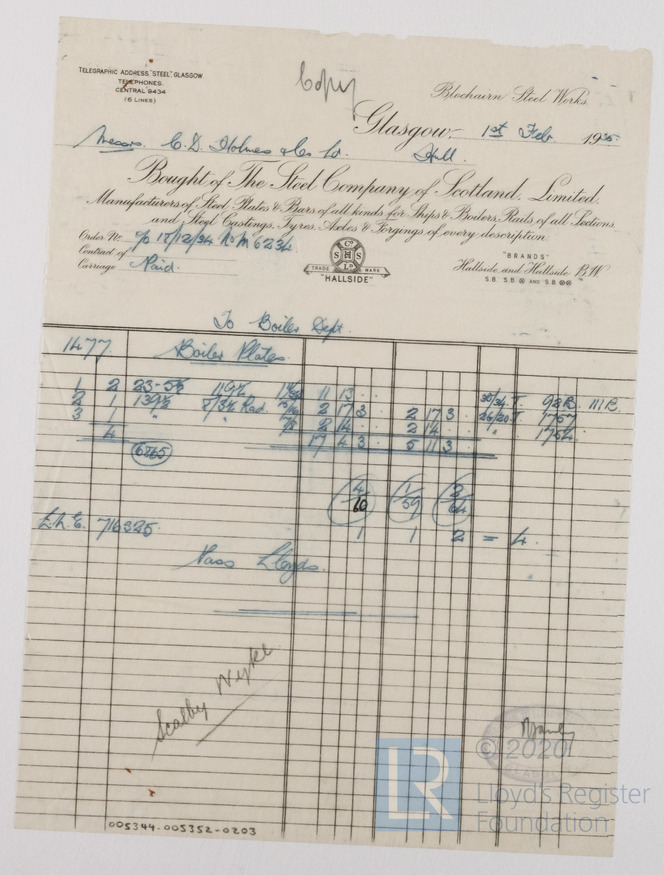 TELEGRAPHIC ADDRESS "STEEL" GLASGOW
TELEPHONES.
CENTRAL 9434
(6 LINES)
Copy
Blochairn Steel Works.
Glasgow, 1st Feb 1935
Messrs C. D. Holmes & Co Ld. Hull.
Bought of The Steel Company of Scotland, Limited.
Manufacturers of Steel Plates & Bars of all kinds for Ships & Boilers, Rails of all Sections,
and Steel Castings, Tyres, Axles & Forgings of every description
Order No 18/12/34 No M 6234
Contract of
Carriage Paid.
Co S H S Ld
TRADE MARK
"HALLSIDE"
"BRANDS"
Hallside and Hallside B.W
S.B. S.B AND S.B
To Boiler Dept.
1477. Boiler Plates.
1 2 11 13 T. 92B. 111B.
2 1 Rad. 2 17 3 2 17 3 26/30 T.
3 1 " " 2 14 2 14 "
4 17 4 3 5 11 3
4/60 1/59 2/64
1 1 2 = 4.
716325
Pass Lloyds.
Scalby Wyke
© 2020
LR Lloyd's Register
Foundation
005344-005352-0203